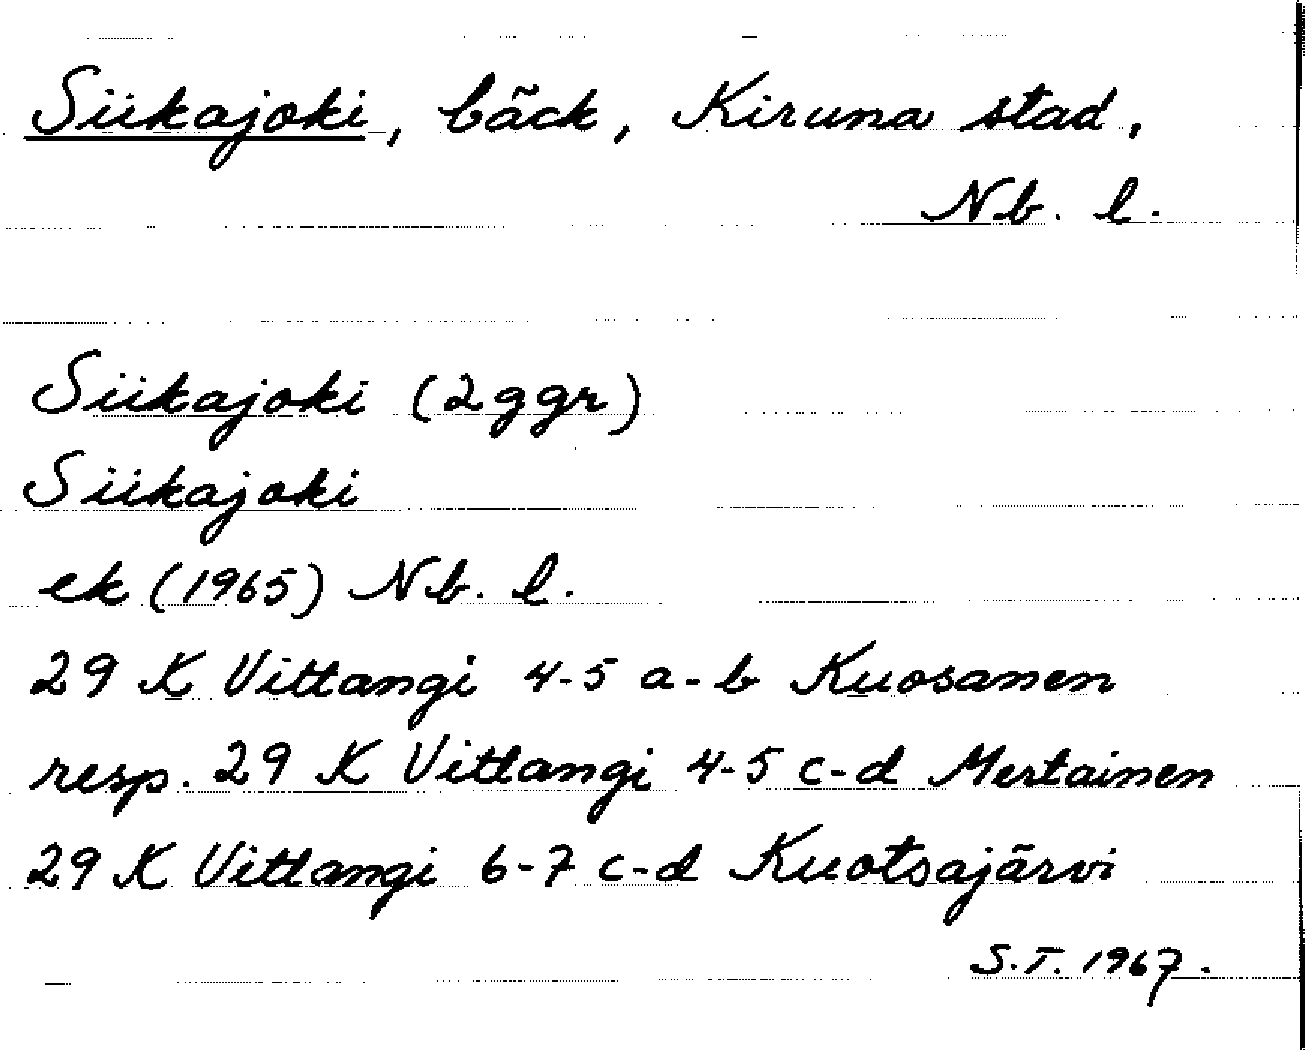 Siikajoki, bäck, Kiruna stad,
Nb. l.
Siikajoki (2ggr)
Siikajoki
ek (1965) Nb. l.
29 K Vittangi 4-5 a-b Kuosanen
resp. 29 K Vittangi 4-5 c-d Mertainen
29 K Vittangi 6-7 c-d Kuotsajärvi
S.T. 1967.